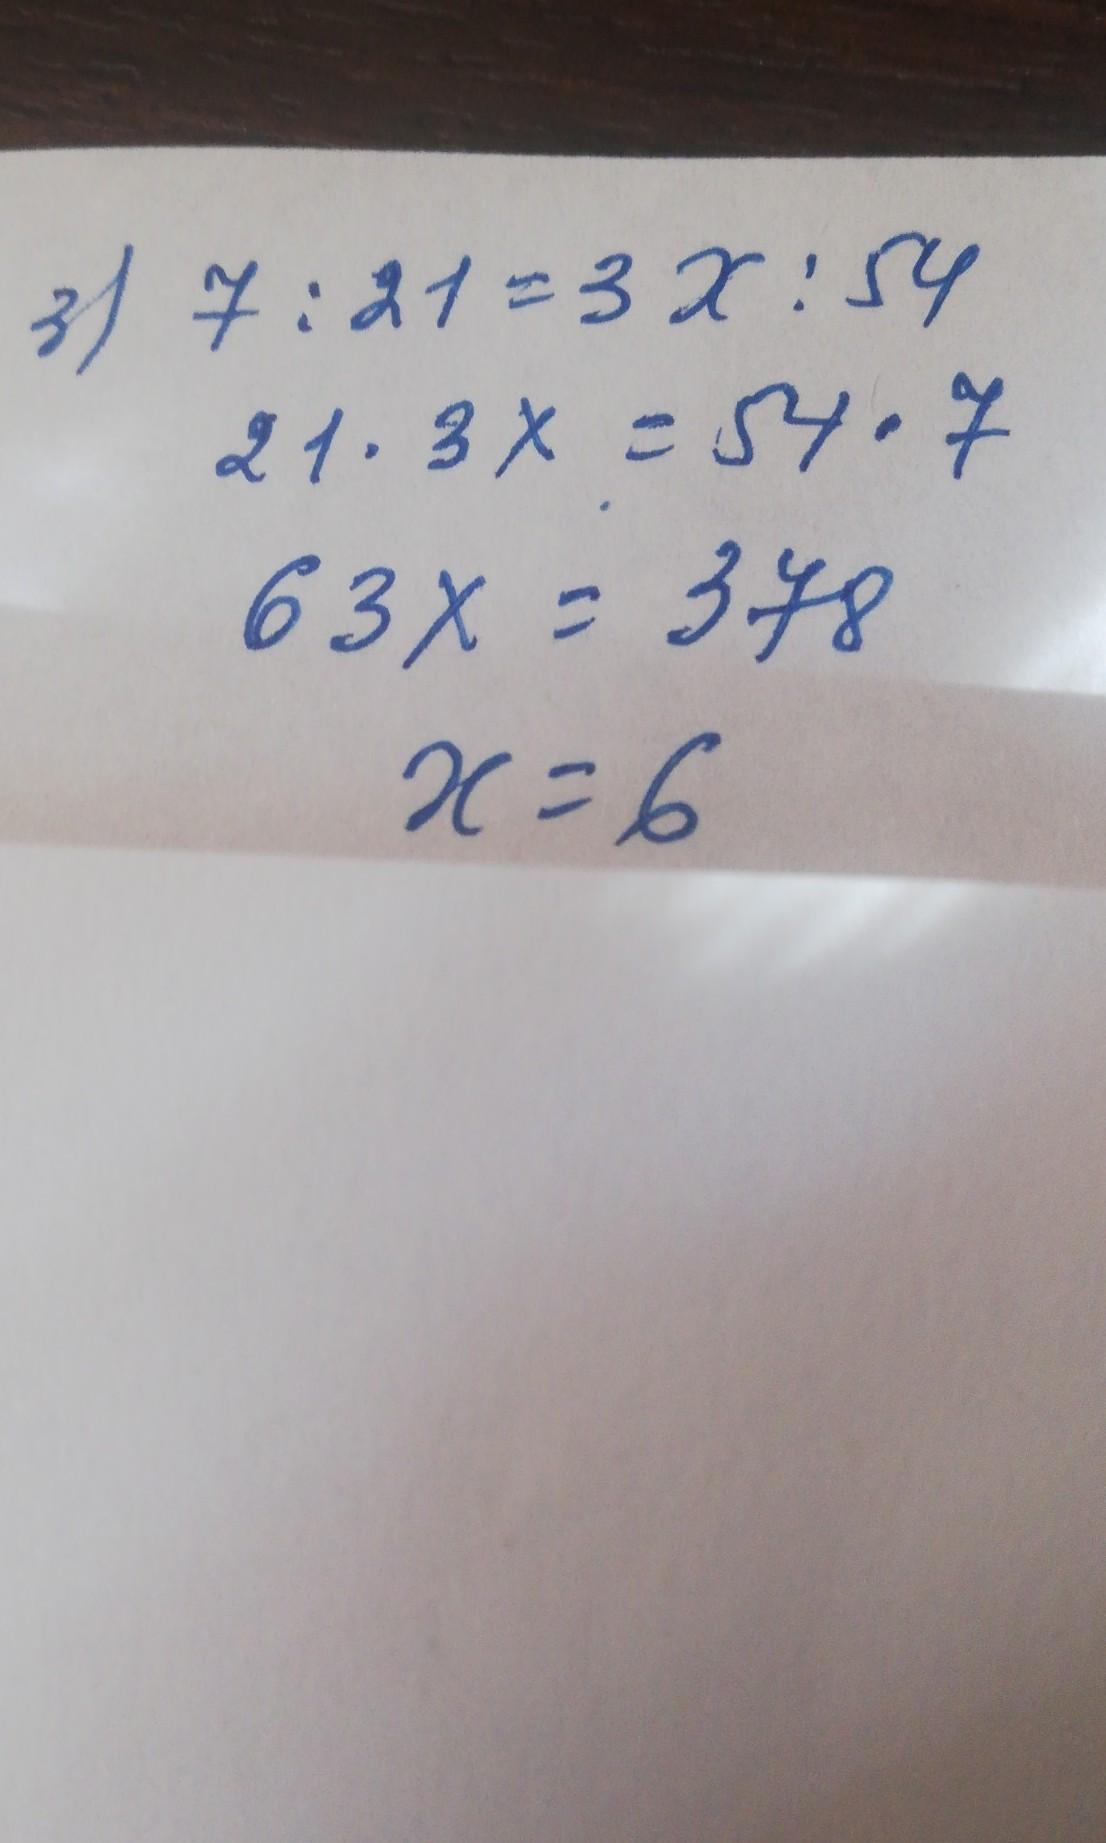 3) 7 : 21 = 3x : 54
21 · 3x = 54 · 7
63x = 378
x = 6